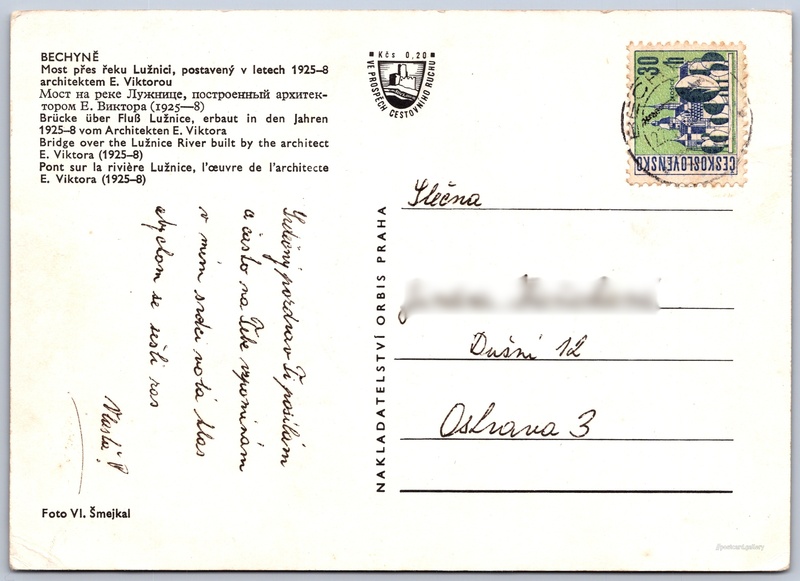 BECHYNĚ
Most přes řeku Lužnici, postavený v letech 1925-8
architektem E. Viktorou
Мост на реке Лужнице, построенный архитек-
тором Е. Виктора (1925—8)
Brücke über Fluß Lužnice, erbaut in den Jahren
1925-8 vom Architekten E. Viktora
Bridge over the Lužnice River built by the architect
E. Viktora (1925-8)
Pont sur la rivière Lužnice, l'œuvre de l'architecte
E. Viktora (1925-8)
Srdečný pozdrav Ti posílám
a často na Tebe vzpomínám
v mém srdci volá hlas
abychom se sešli zas
Foto Vl. Šmejkal
NAKLADATELSTVÍ ORBIS PRAHA
Kčs 0,20
VE PROSPĚCH CESTOVNÍHO RUCHU
30 h
ČESKOSLOVENSKO
Slečna
Dušní 12
Ostrava 3